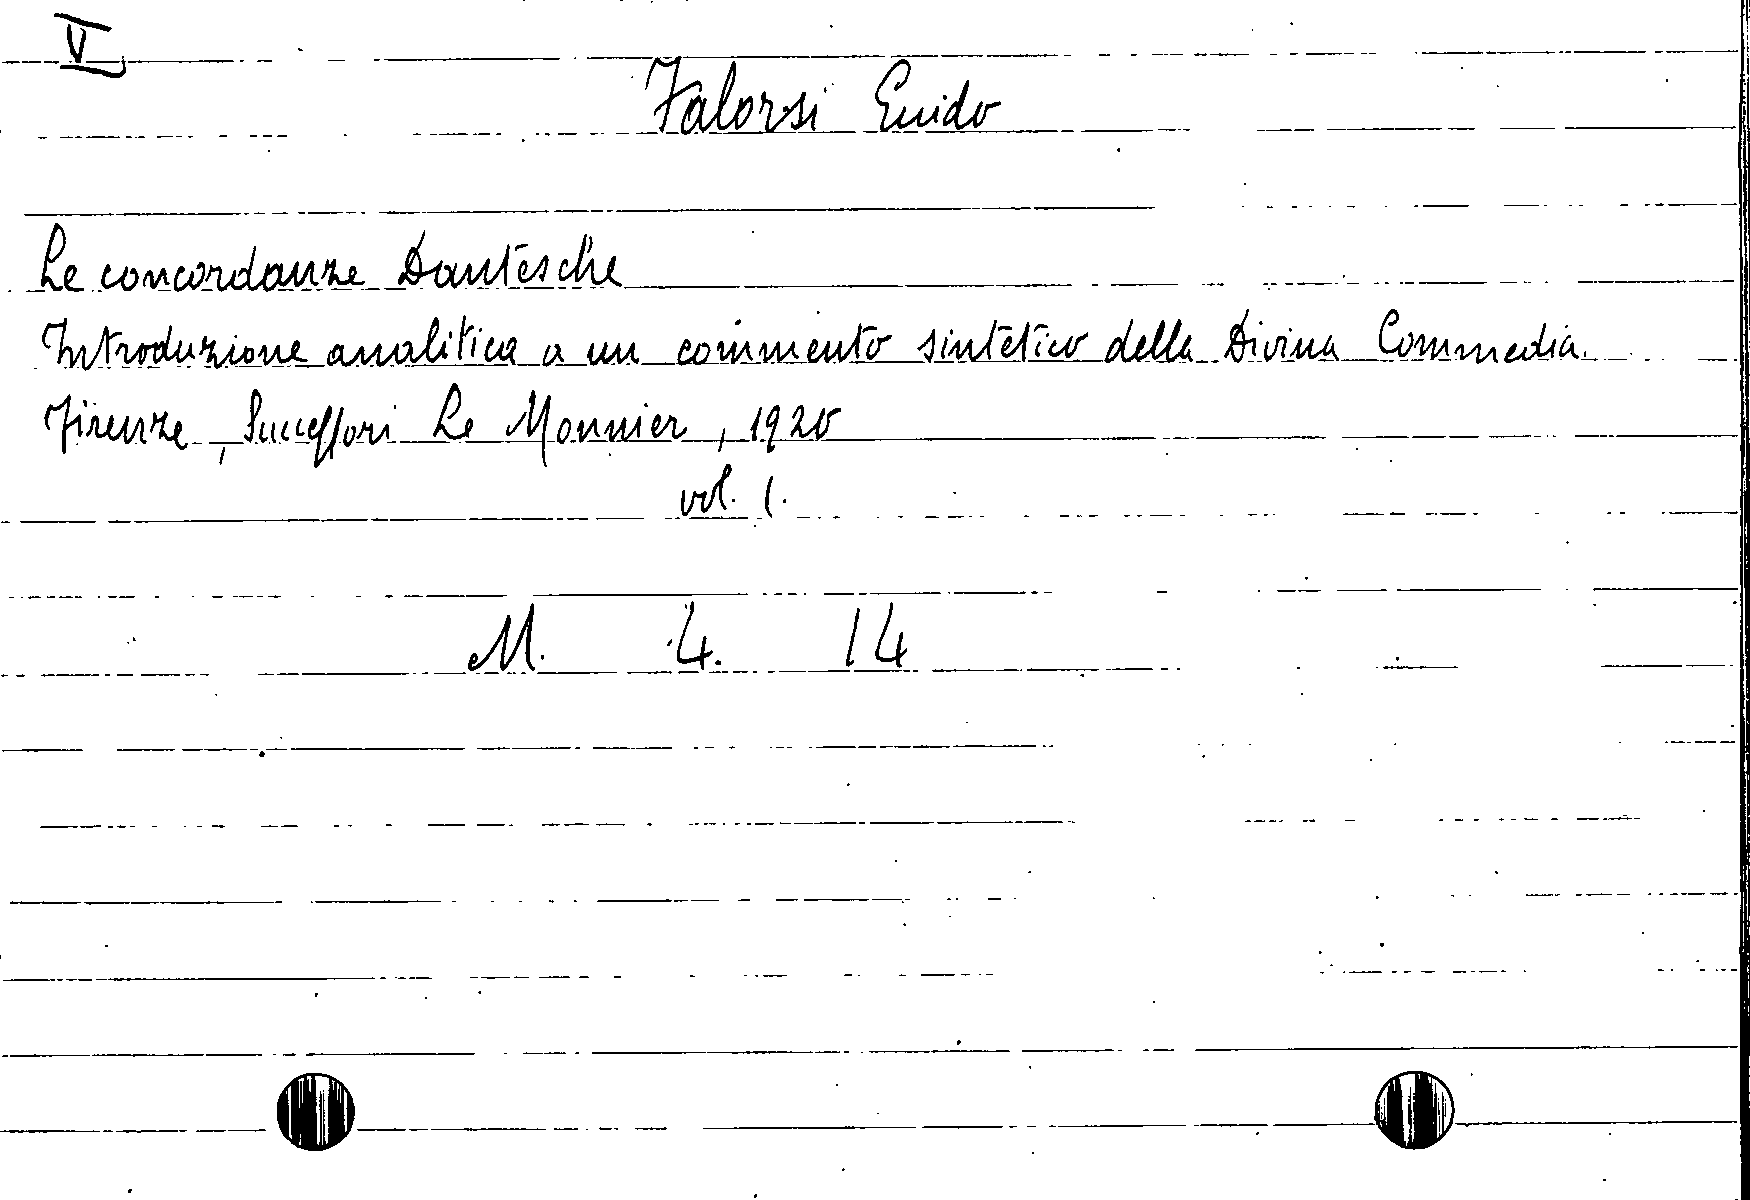 V
Falorsi Guido
Le concordanze Dantesche
Introduzione analitica a un commento sintetico della Divina Commedia.
Firenze, Successori Le Monnier, 1920
vol. 1.
M. 4. 14